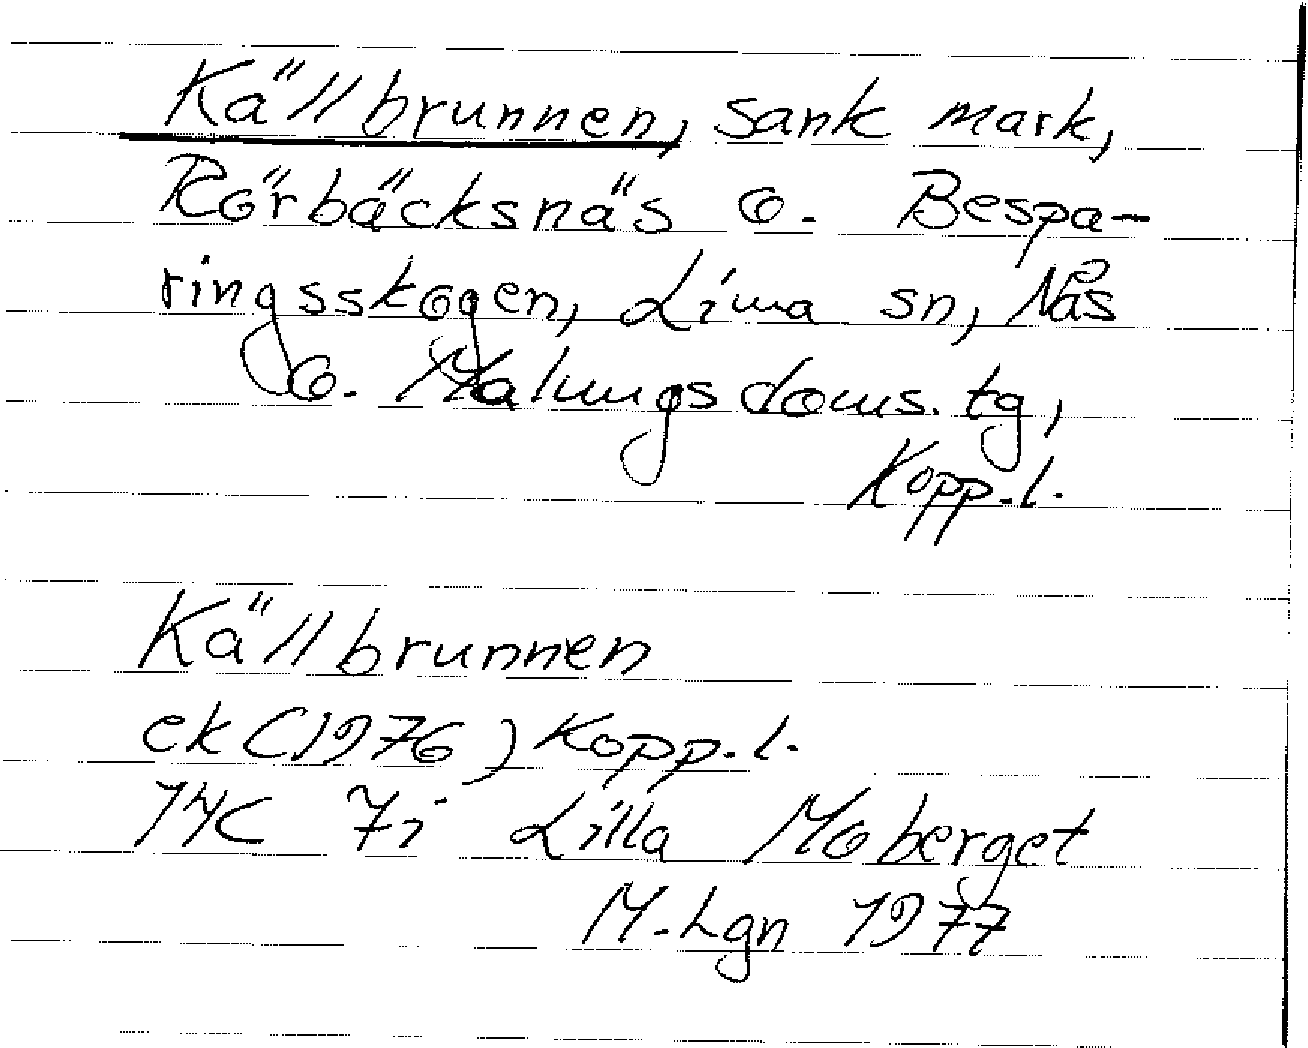 Källbrunnen, sank mark,
Rörbäcksnäs o. Bespa-
ringsskogen, Lima sn, Nås
o. Malungs doms. tg,
Kopp. l.
Källbrunnen
ek (1976) Kopp. l.
14C 7i Lilla Moberget
M. Lgn 1977